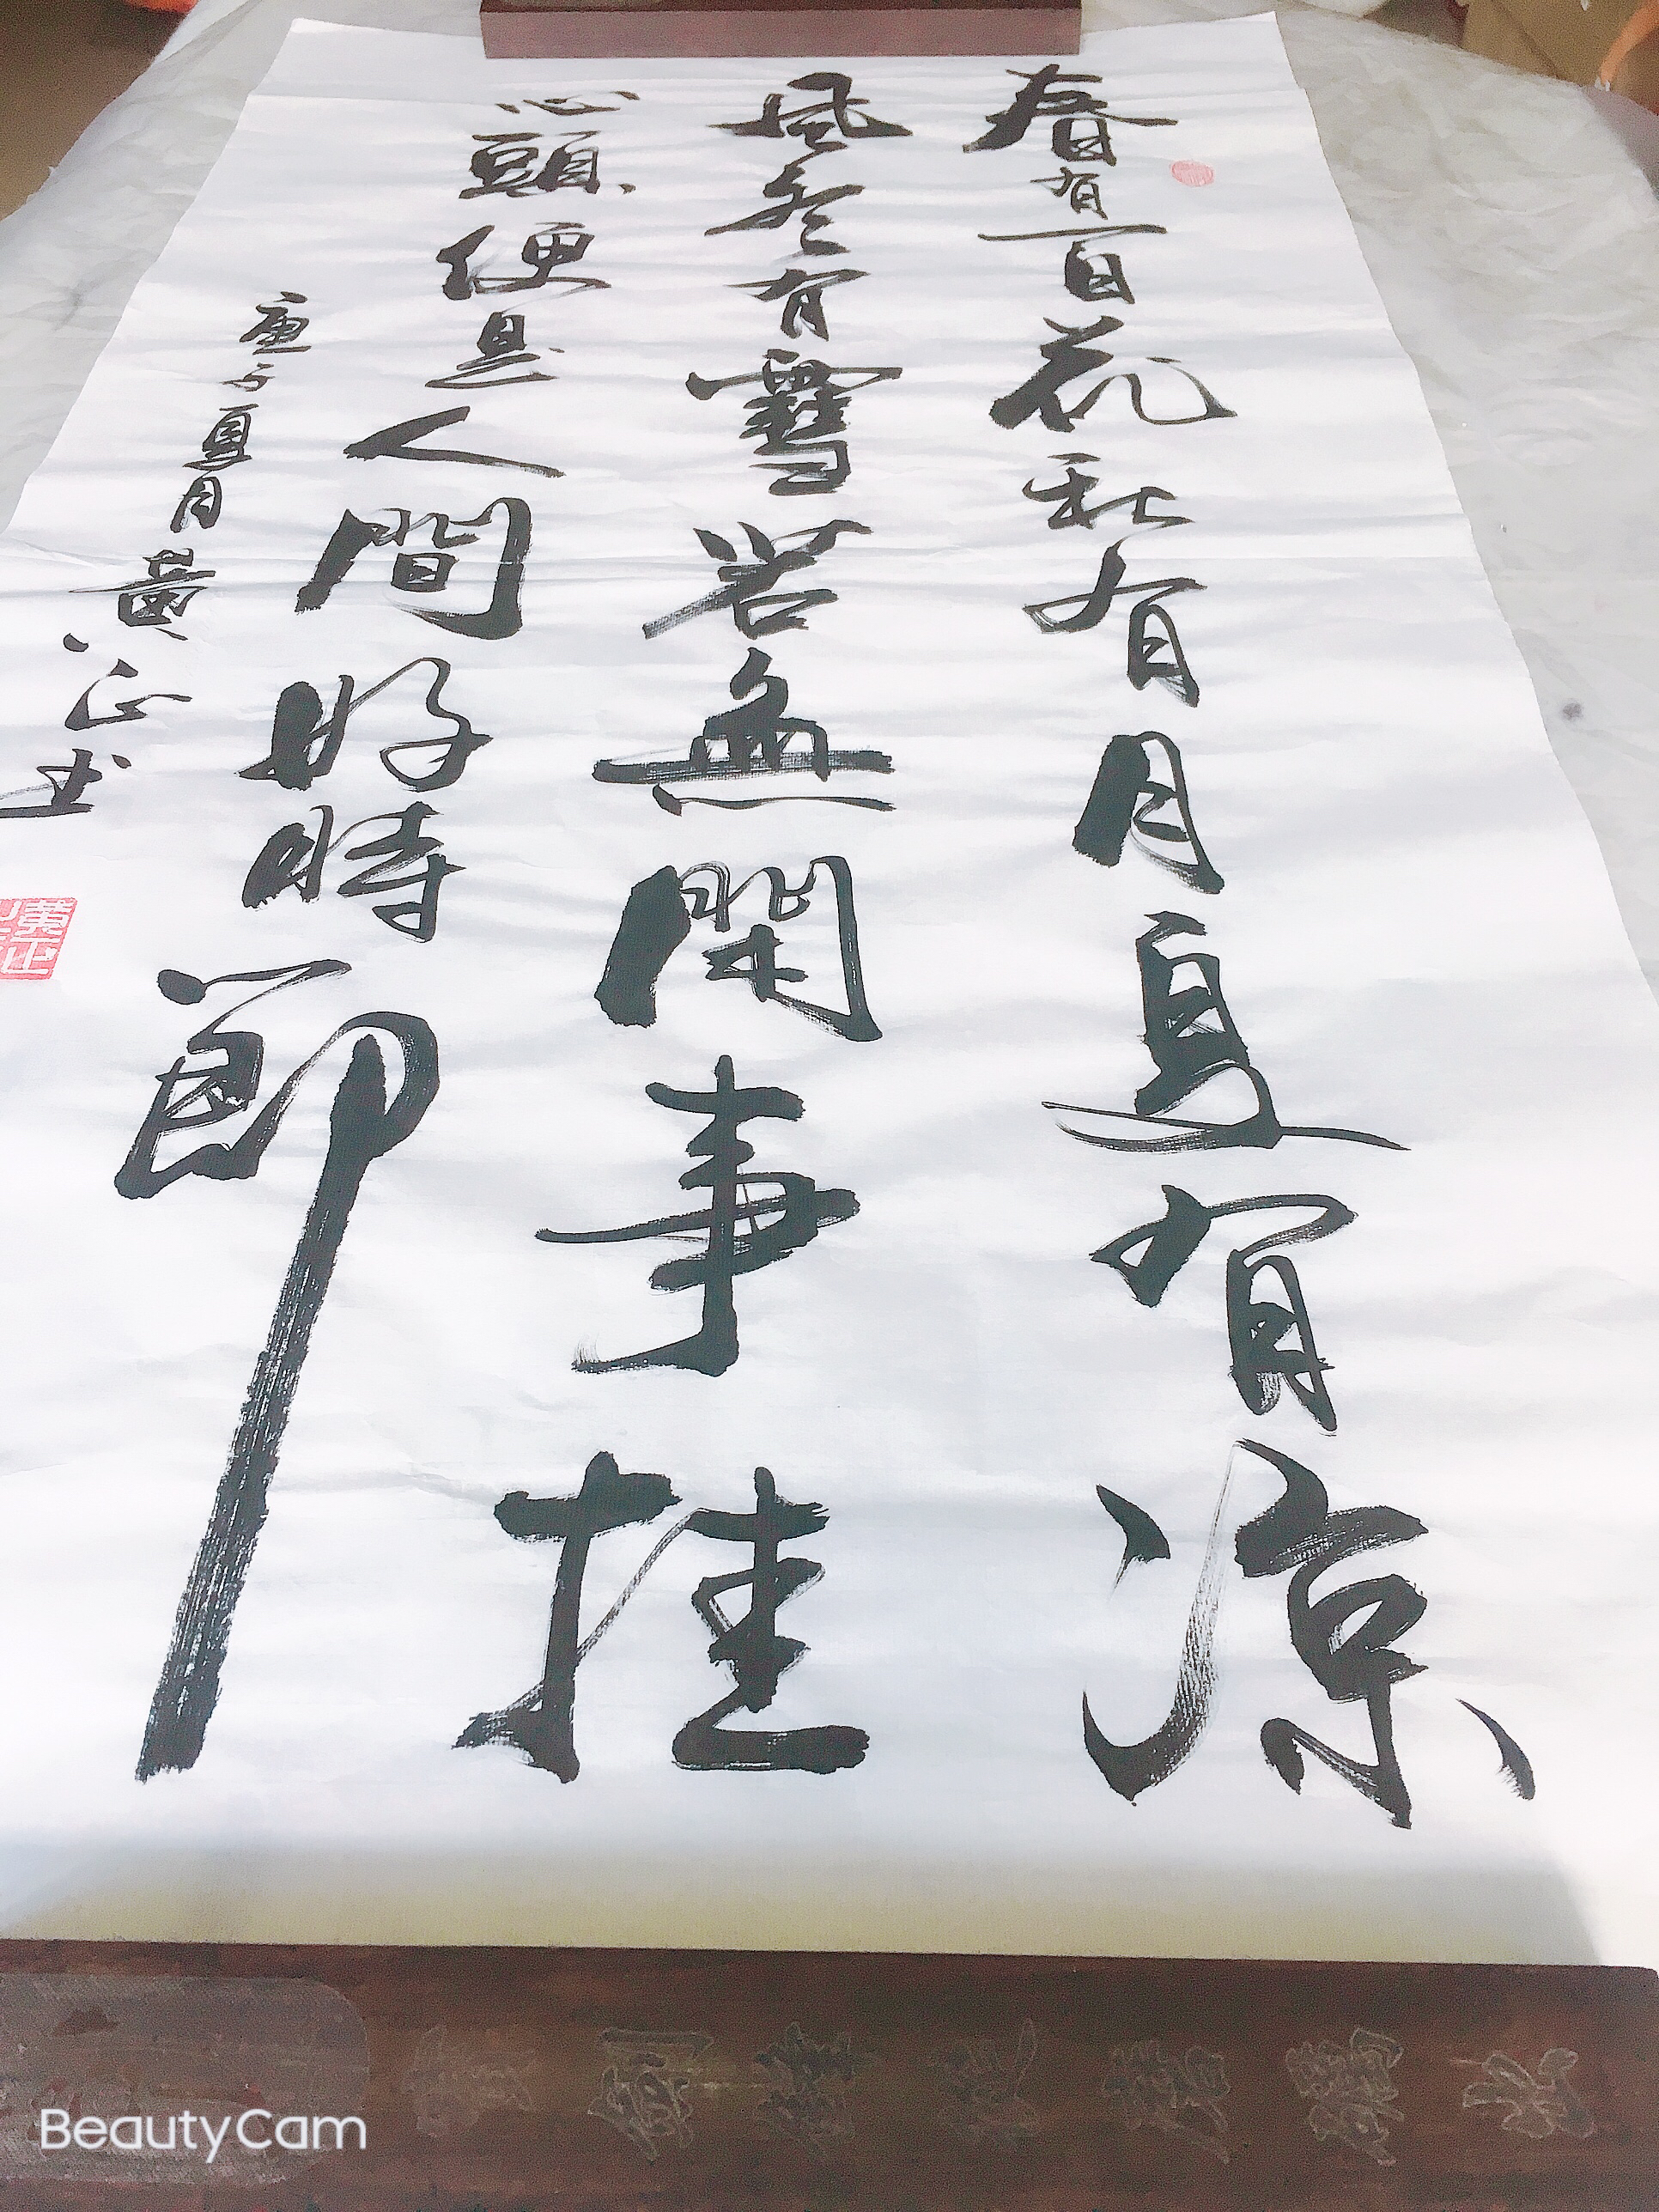 春有百花秋有月夏有凉
風冬有雪若無閑事挂
心頭便是人間好時節
庚子夏月黄正书
黄正
BeautyCam